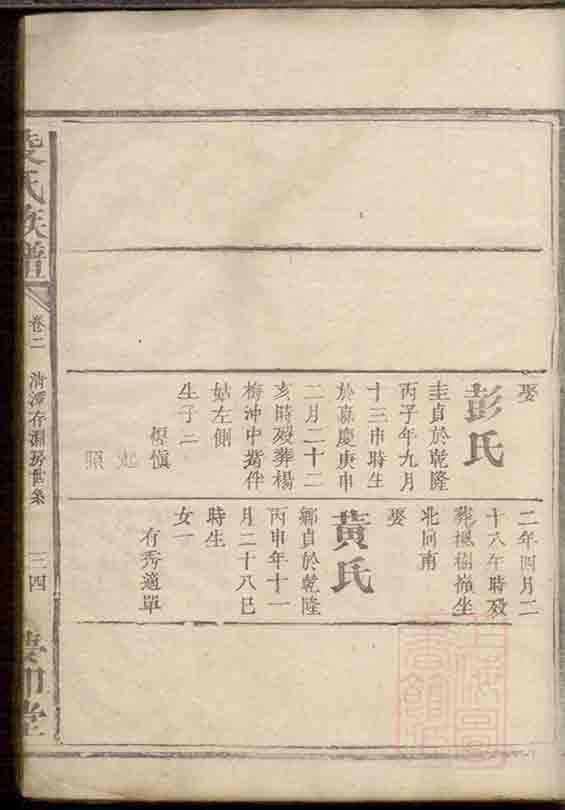 娶
彭氏
圭貞於乾隆
丙子年九月
十三申時生
於嘉慶庚申
二月二十二
亥時歿葬楊
梅沖中嘴件
姑左側
生子二
恆慎
照
二年四月二
十八午時歿
葬楓樹嶺坐
北向南
娶
黃氏
鄉貞於乾隆
丙申年十一
月二十八巳
時生
女一
有秀適單
氏族譜
卷二
清潭存淵房世系
三四